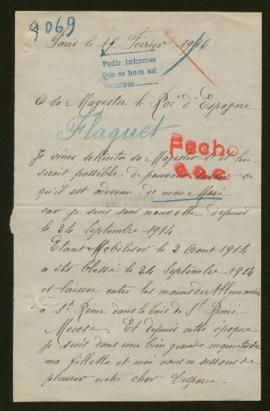 9069
Paris le 17 Fevrier 1916
Pedir informes
Que se hace así
A sa Magester le Roi d'Espagne
Flaquet
Hecho
Je viens sa Magester
serait possible de pouvoir ce
qu'il est advenue de mon Mari
car je suis sans nouvelle depuis
le 24 Septembre 1914
Etant Mobiliser le 2 Aout 1914
a été blessé le 24 Septembre 1914
et laisser entre les mains des Allemands
a St Remi dans le bois de St Remi
Meuse. Et depuis cette epoque
je suis dans une bien grande inquietude
ma fillette et moi nous ne cessons de
pleurer notre cher